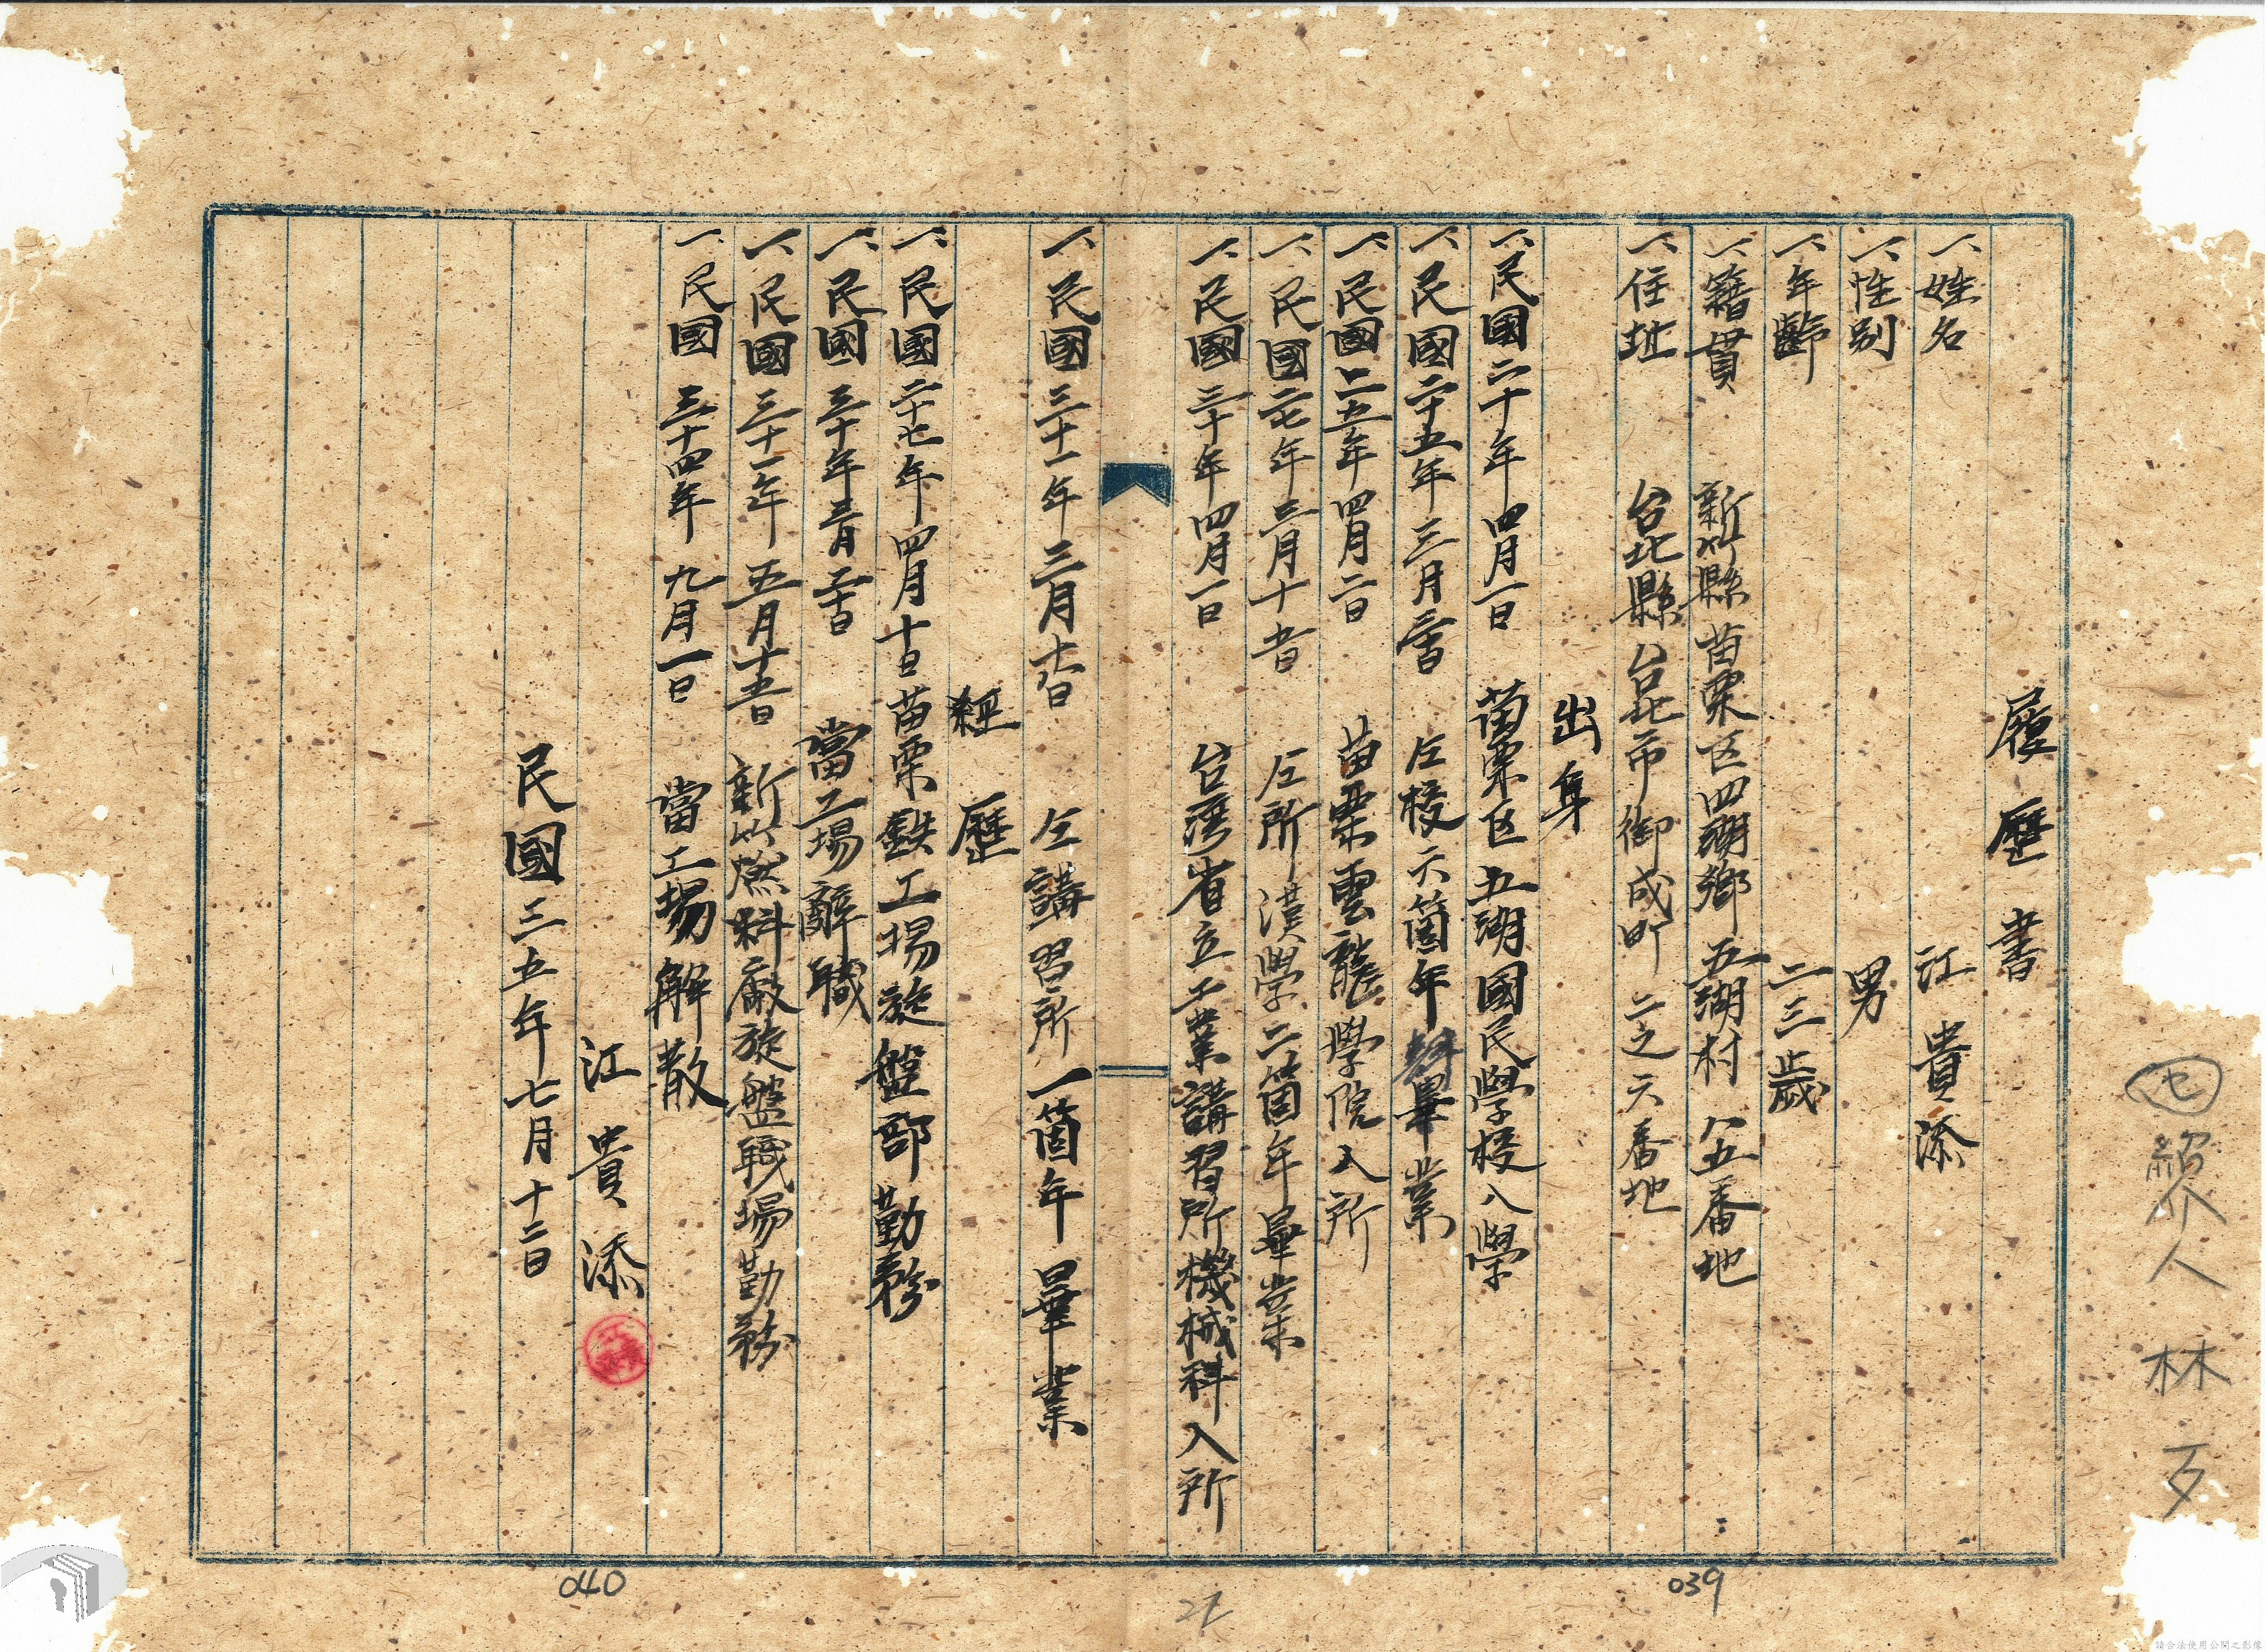 履歷書
一、姓名 江貴添
一、性別 男
一、年齡 二三歲
一、籍貫 新竹縣苗栗区四湖鄉五湖村八五番地
一、住址 台北縣台北市御成町二之六番地
出身
一、民國二十年四月一日 苗栗区五湖國民學校入學
一、民國二十五年三月 仝校六箇年畢業
一、民國二五年四月二日 苗栗雲龍學院入所
一、民國二七年三月十 仝所漢學二箇年畢業
一、民國三十年四月一日 台湾省立工業講習所機械科入所
一、民國三十一年三月 仝講習所一箇年畢業
經歷
一、民國二十七年四月十日 苗栗鉄工場旋盤部勤務
一、民國三十年三月 當工場辭職
一、民國三十一年五月十五日 新竹燃料廠旋盤職場勤務
一、民國三十四年九月一日 當工場解散
江貴添
民國三五年七月十二日
紹介人 林
039
040
請合法使用公開之影像